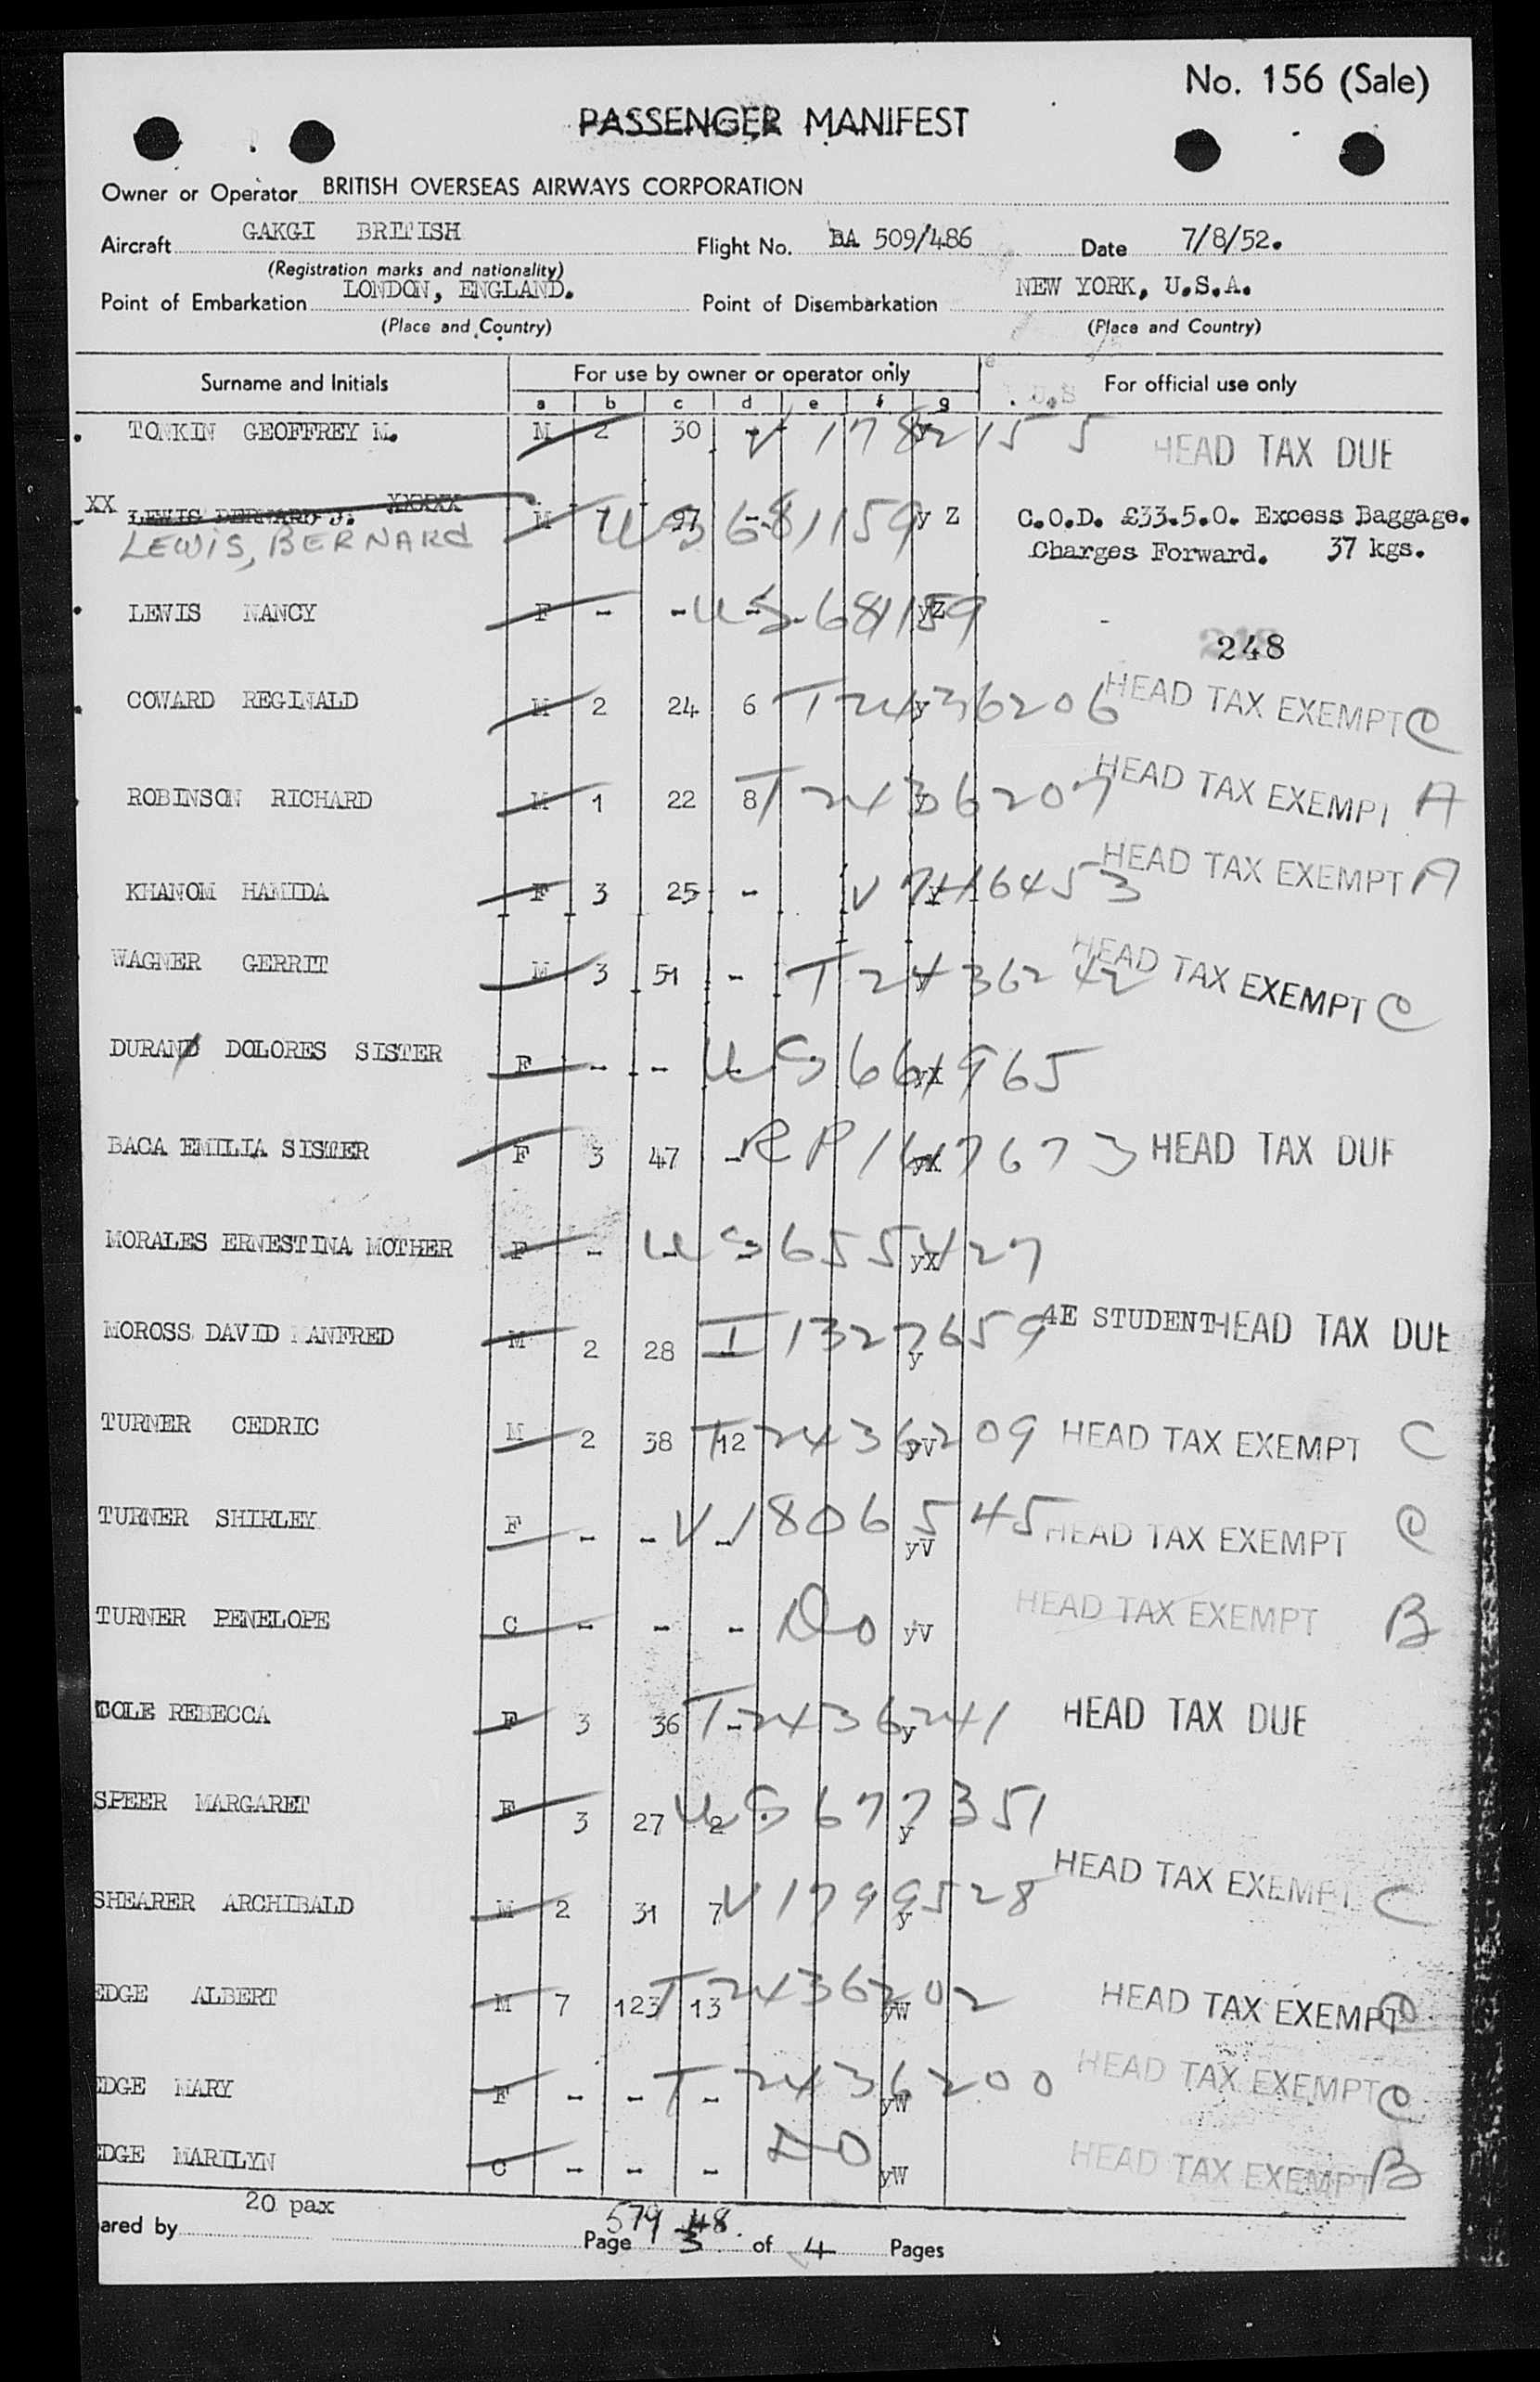 No. 156 (Sale)
PASSENGER MANIFEST
Owner or Operator BRITISH OVERSEAS AIRWAYS CORPORATION
Aircraft GAKGI BRITISH Flight No. BA 509/486 Date 7/8/52.
(Registration marks and nationality)
Point of Embarkation LONDON, ENGLAND. Point of Disembarkation NEW YORK, U.S.A.
(Place and Country) (Place and Country)
Surname and Initials For use by owner or operator only For official use only
a b c d e f g
TONKIN GEOFFREY M. M 2 30 - V 1782155 HEAD TAX DUE
XX LEWIS BERNARD J. XXXXX M 7 97 - US 681159 y Z C.O.D. £33.5.0. Excess Baggage.
LEWIS, BERNARd Charges Forward. 37 kgs.
LEWIS NANCY F - - - US 681159 yZ
248
COWARD REGINALD M 2 24 6 T 2436206 y HEAD TAX EXEMPT C
ROBINSON RICHARD M 1 22 8 T 2436207 y HEAD TAX EXEMPT A
KHANOM HAMIDA F 3 25 - V 7416453 y HEAD TAX EXEMPT A
WAGNER GERRIT M 3 51 - T 2436242 y HEAD TAX EXEMPT C
DURAND DOLORES SISTER F - - - US 661965 yX
BACA EMILIA SISTER F 3 47 - RP 1647673 yX HEAD TAX DUE
MORALES ERNESTINA MOTHER F - - - US 655427 yX
MOROSS DAVID MANFRED M 2 28 I 1327659 y 4E STUDENT HEAD TAX DUE
TURNER CEDRIC M 2 38 12 T 2436209 yV HEAD TAX EXEMPT C
TURNER SHIRLEY F - - - V 1806545 yV HEAD TAX EXEMPT C
TURNER PENELOPE C - - - Do yV HEAD TAX EXEMPT B
COLE REBECCA F 3 36 - T 2436241 y HEAD TAX DUE
SPEER MARGARET F 3 27 2 US 677351 y
SHEARER ARCHIBALD M 2 31 7 V 1799528 y HEAD TAX EXEMPT C
EDGE ALBERT M 7 123 13 T 2436202 yW HEAD TAX EXEMPT C
EDGE MARY F - - - T 2436200 yW HEAD TAX EXEMPT C
EDGE MARILYN C - - - DO yW HEAD TAX EXEMPT B
20 pax 579 48.
ared by Page 3 of 4 Pages